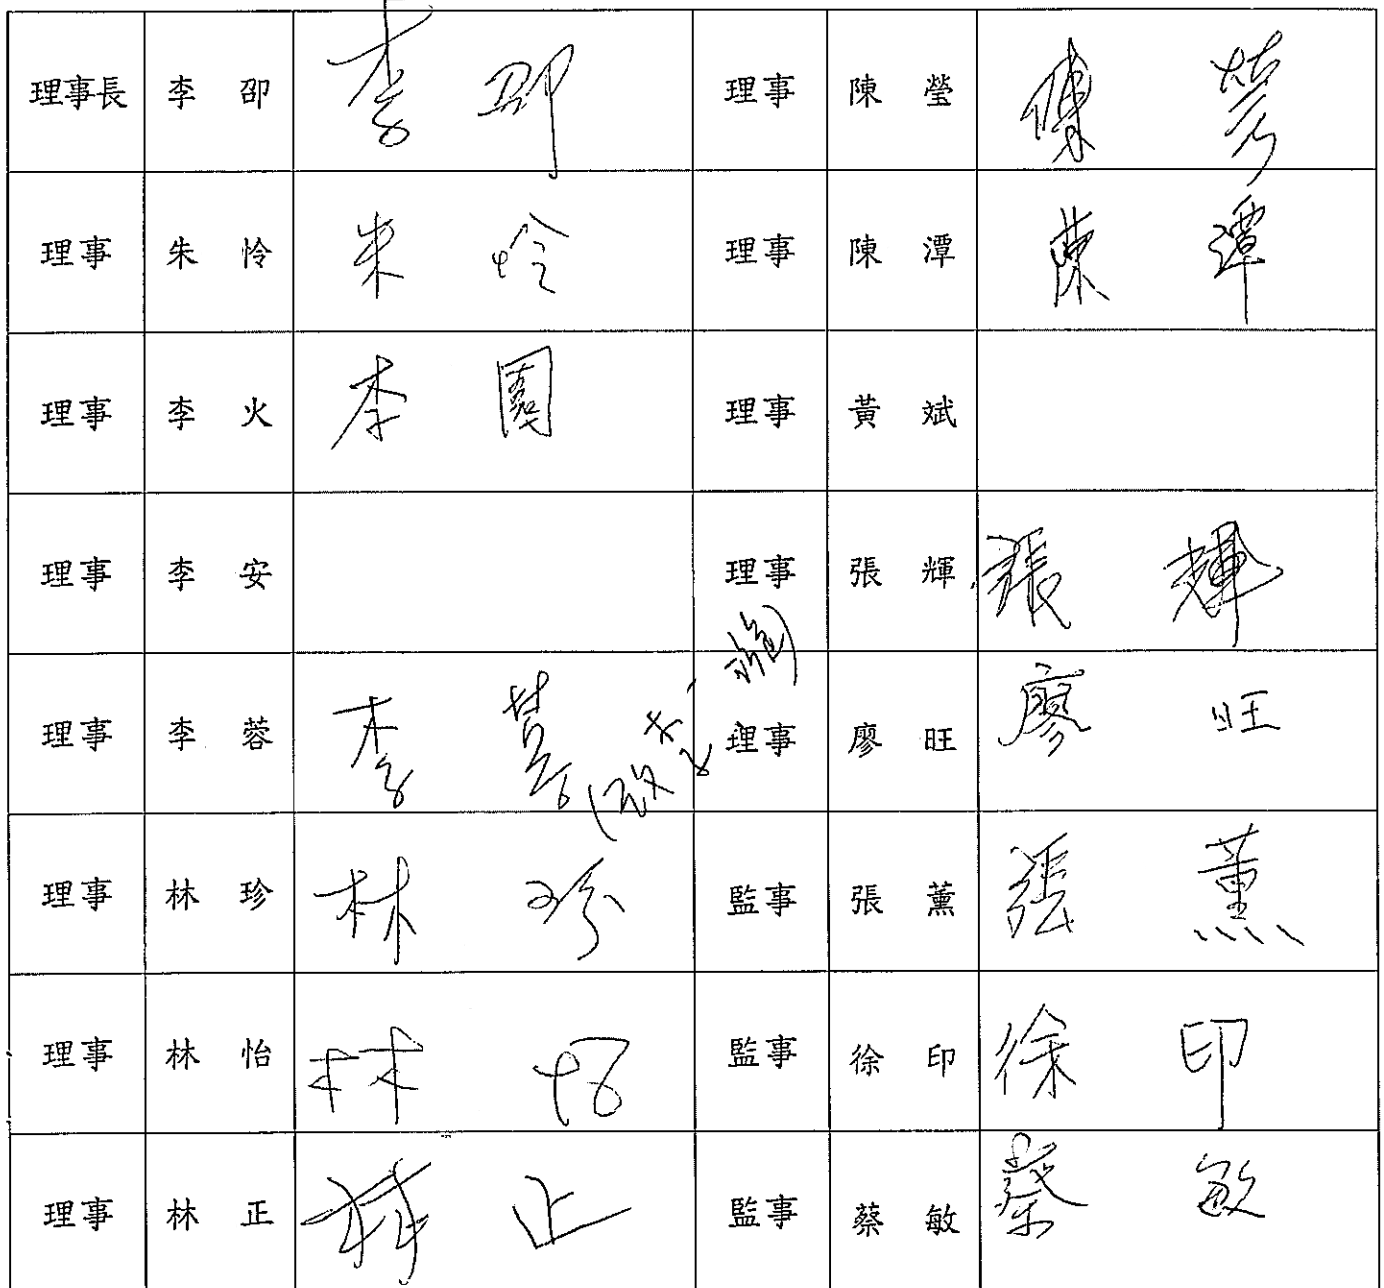 理事長 李 卲 李 卲 理事 陳 瑩 陳 瑩
理事 朱 怜 朱 怜 理事 陳 潭 陳 潭
理事 李 火 李 園 理事 黃 斌
理事 李 安 理事 張 輝 張 輝
理事 李 蓉 李 蓉 理事 廖 旺 廖 旺
理事 林 珍 林 珍 監事 張 薰 張 薰
理事 林 怡 林 怡 監事 徐 印 徐 印
理事 林 正 林 正 監事 蔡 敏 蔡 敏